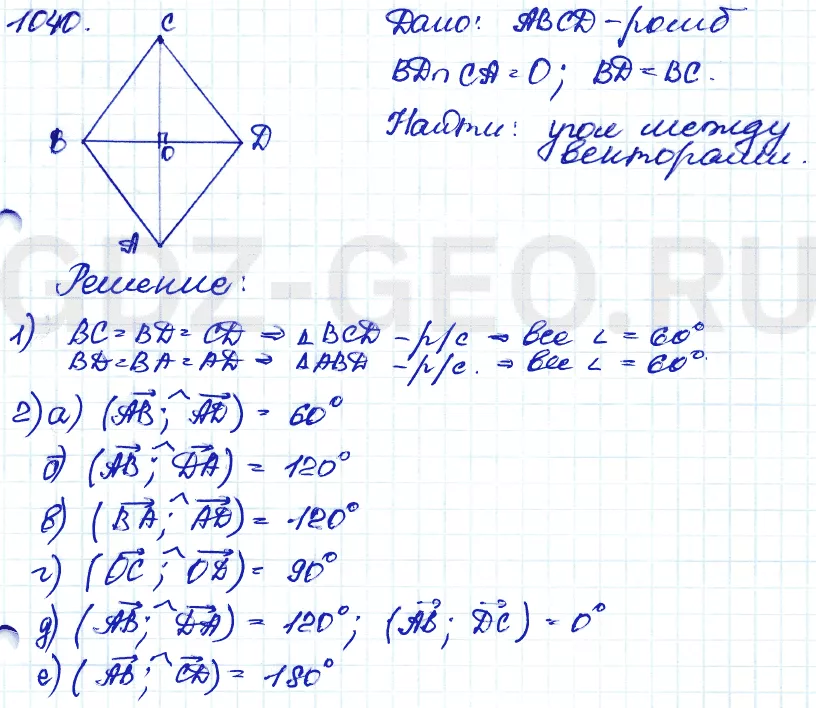 1040.
C
B
D
O
A
Дано: ABCD - ромб
BD∩CA = O; BD = BC.
Найти: угол между
векторами.
GDZ-GEO.RU
Решение:
1) BC = BD = CD ⇒ △BCD - р/с ⇒ все ∠ = 60°
BD = BA = AD ⇒ △ABD - р/с. ⇒ все ∠ = 60°.
2) а) (AB⃗ ; ^ AD⃗) = 60°
б) (AB⃗ ; ^ DA⃗) = 120°
в) (BA⃗ ; ^ AD⃗) = 120°
г) (OC⃗ ; ^ OD⃗) = 90°
д) (AB⃗ ; ^ DA⃗) = 120°; (AB⃗ ; DC⃗) = 0°
е) (AB⃗ ; ^ CD⃗) = 180°